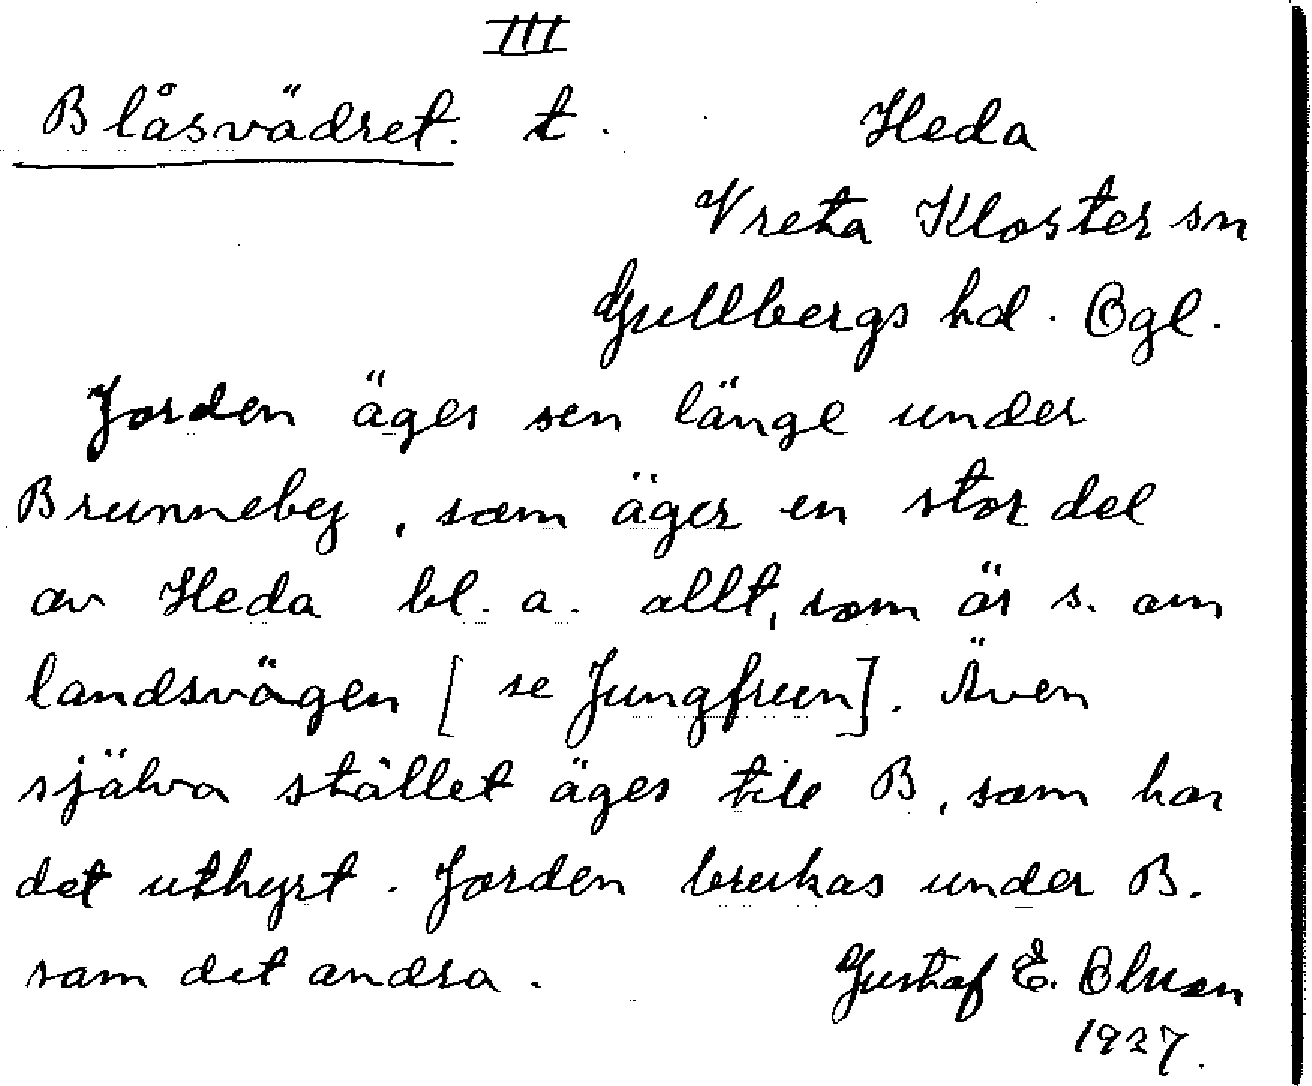 III
Blåsvädret. t. Heda
Vreta Kloster sn
Gullbergs hd. Ögl.
Jorden äges sen länge under
Brunneby, som äger en stor del
av Heda bl. a. allt, som är s. om
landsvägen [se Jungfrun]. Även
själva stället äges till B, som har
det uthyrt. Jorden brukas under B.
som det andra. Gustaf E. Olsson
1927.